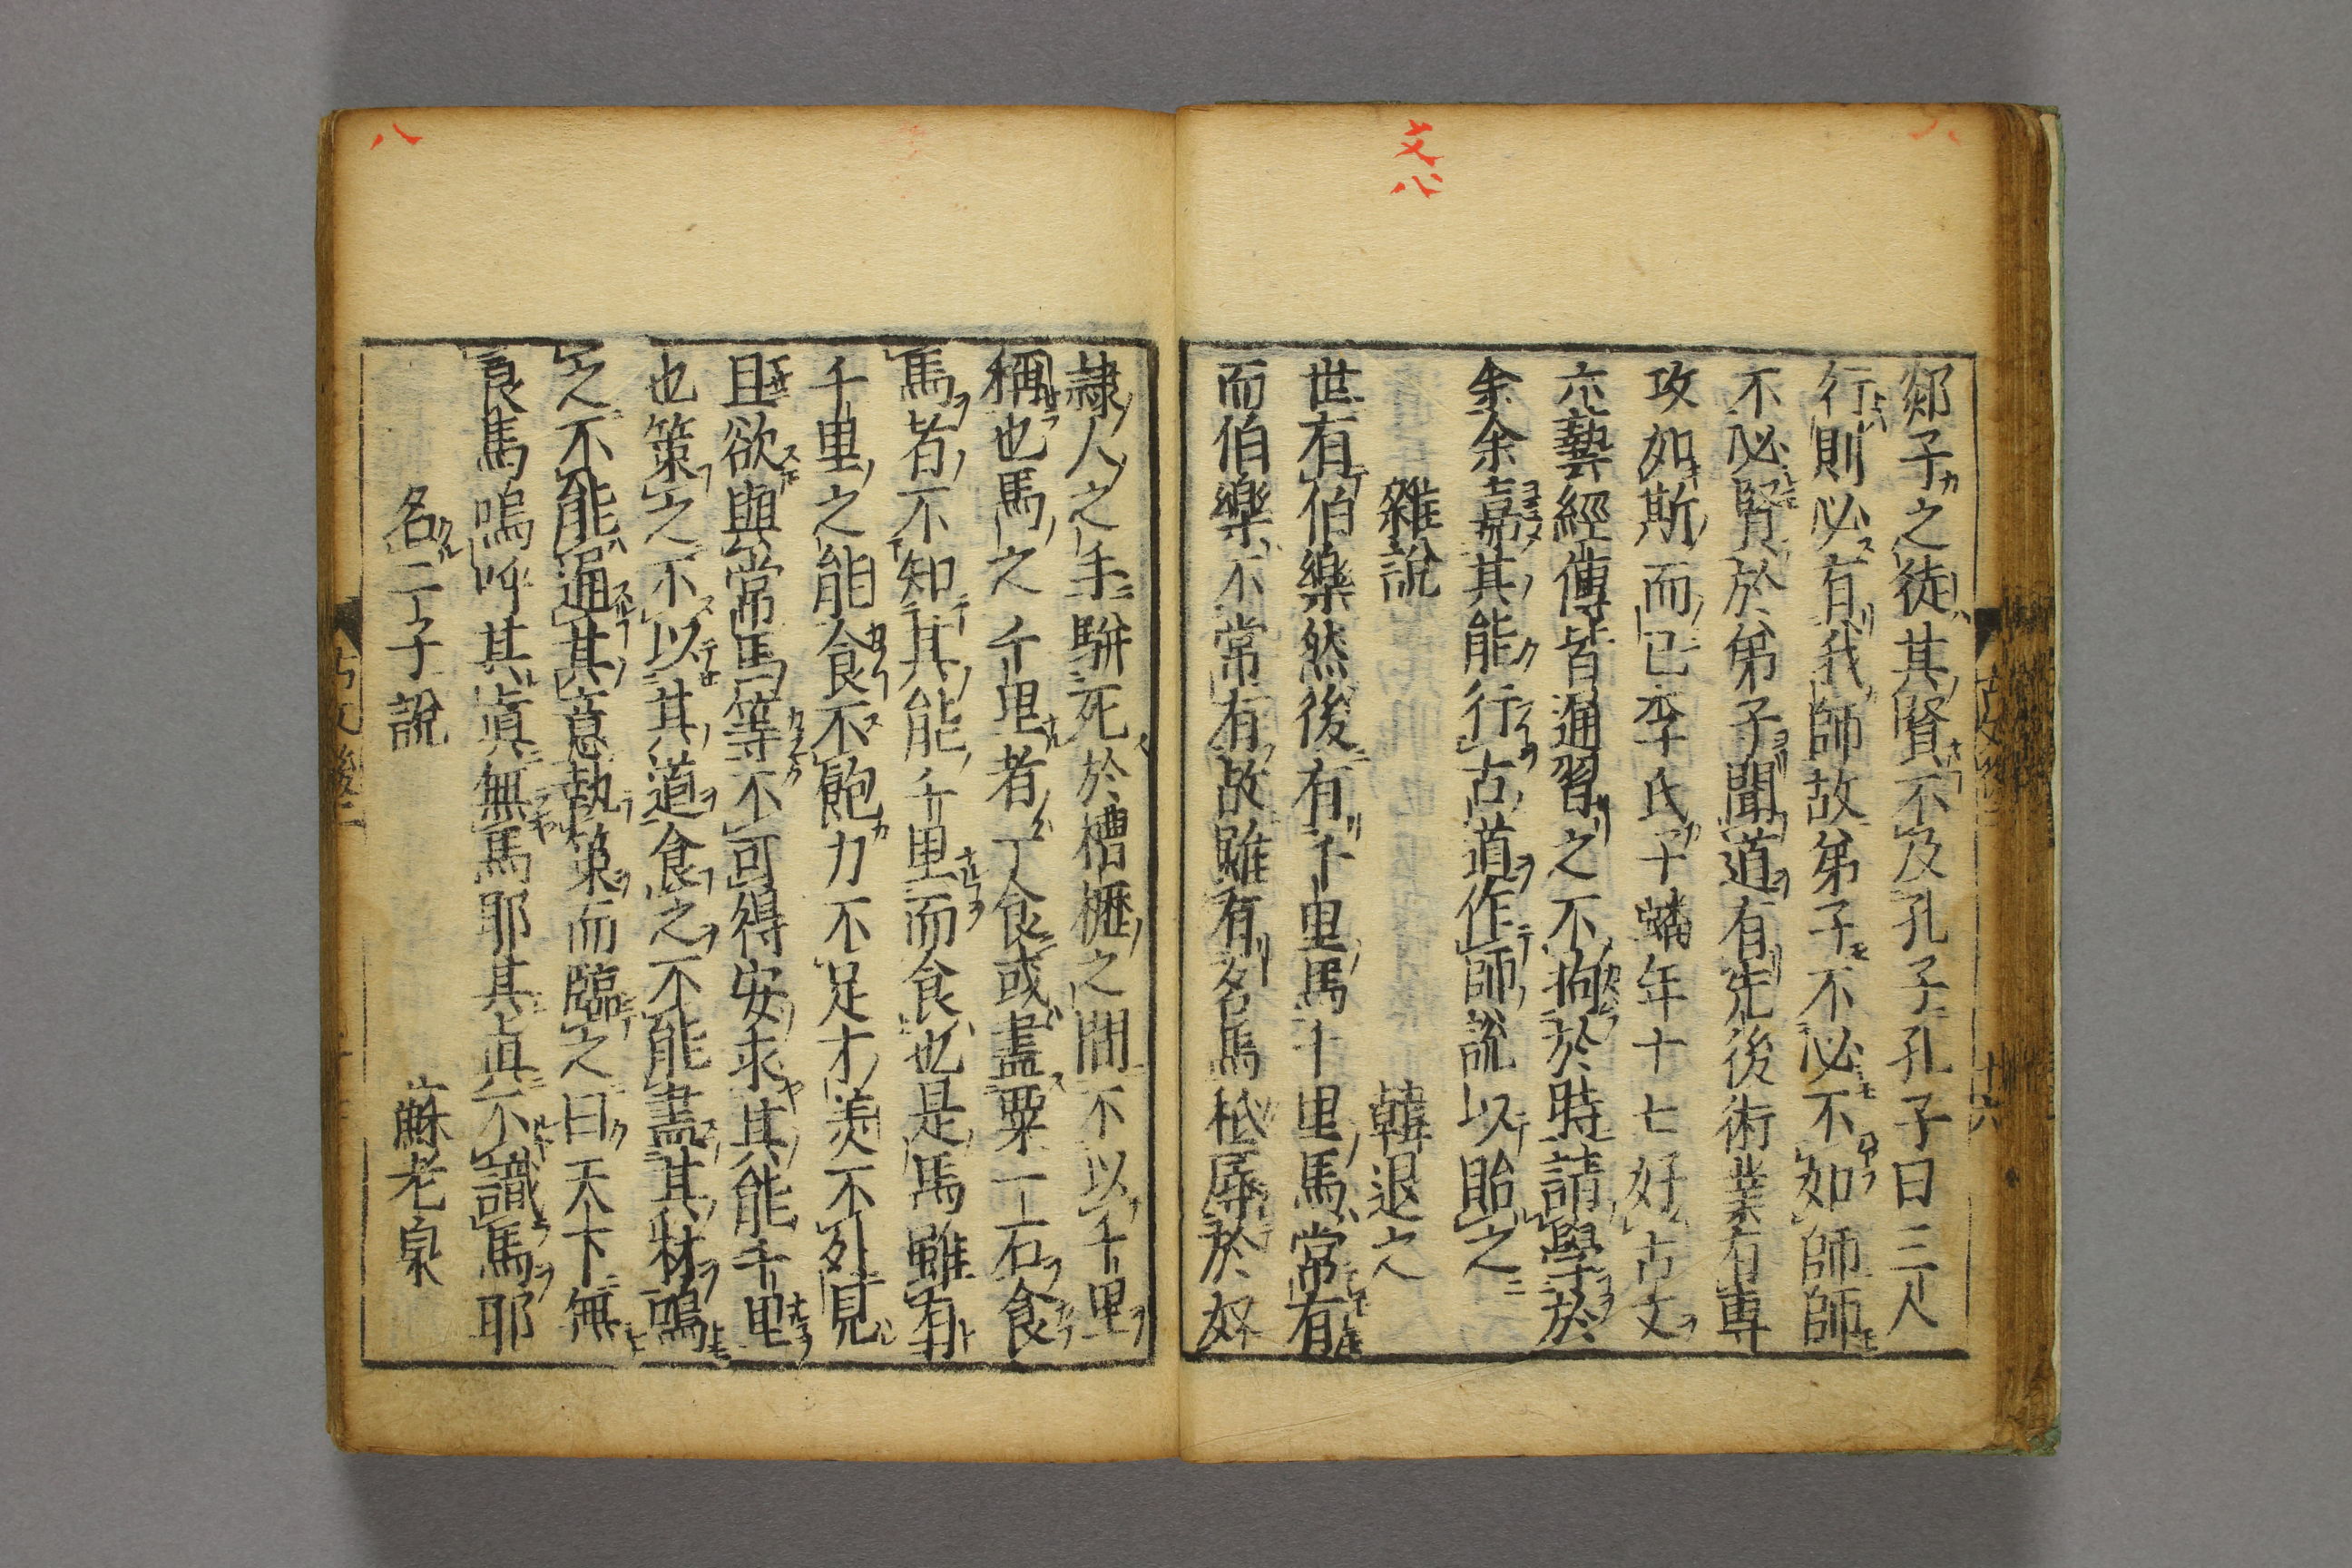 郯子之徒其賢不及孔子孔子曰三人
行則必有我師故弟子不必不如師師
不必賢於弟子聞道有先後術業有專
攻如斯而已李氏子蟠年十七好古文
六藝經傳皆通習之不拘於時請學於
余余嘉其能行古道作師說以貽之
雜說 韓退之
世有伯樂然後有千里馬千里馬常有
而伯樂不常有故雖有名馬秪辱於奴
隷人之手駢死於槽櫪之間不以千里
稱也馬之千里者一食或盡粟一石食
馬者不知其能千里而食也是馬雖有
千里之能食不飽力不足才美不外見
且欲與常馬等不可得安求其能千里
也策之不以其道食之不能盡其材鳴
之不能通其意執策而臨之曰天下無
良馬嗚呼其眞無馬耶其眞不識馬耶
名二子說 蘇老泉
十六
文
八
八